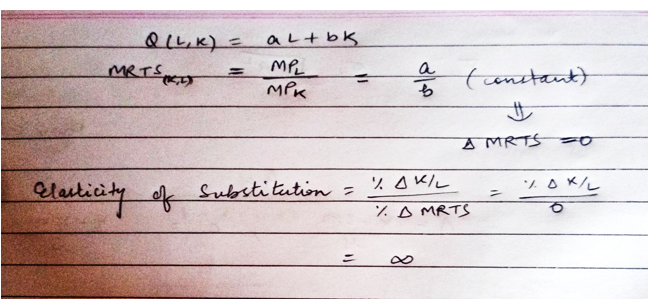 Q(L,K) = aL + bK
MRTS(K,L) = MPL/MPK = a/b (constant)
⇓
Δ MRTS = 0
Elasticity of Substitution = % Δ K/L / % Δ MRTS = % Δ K/L / 0
= ∞